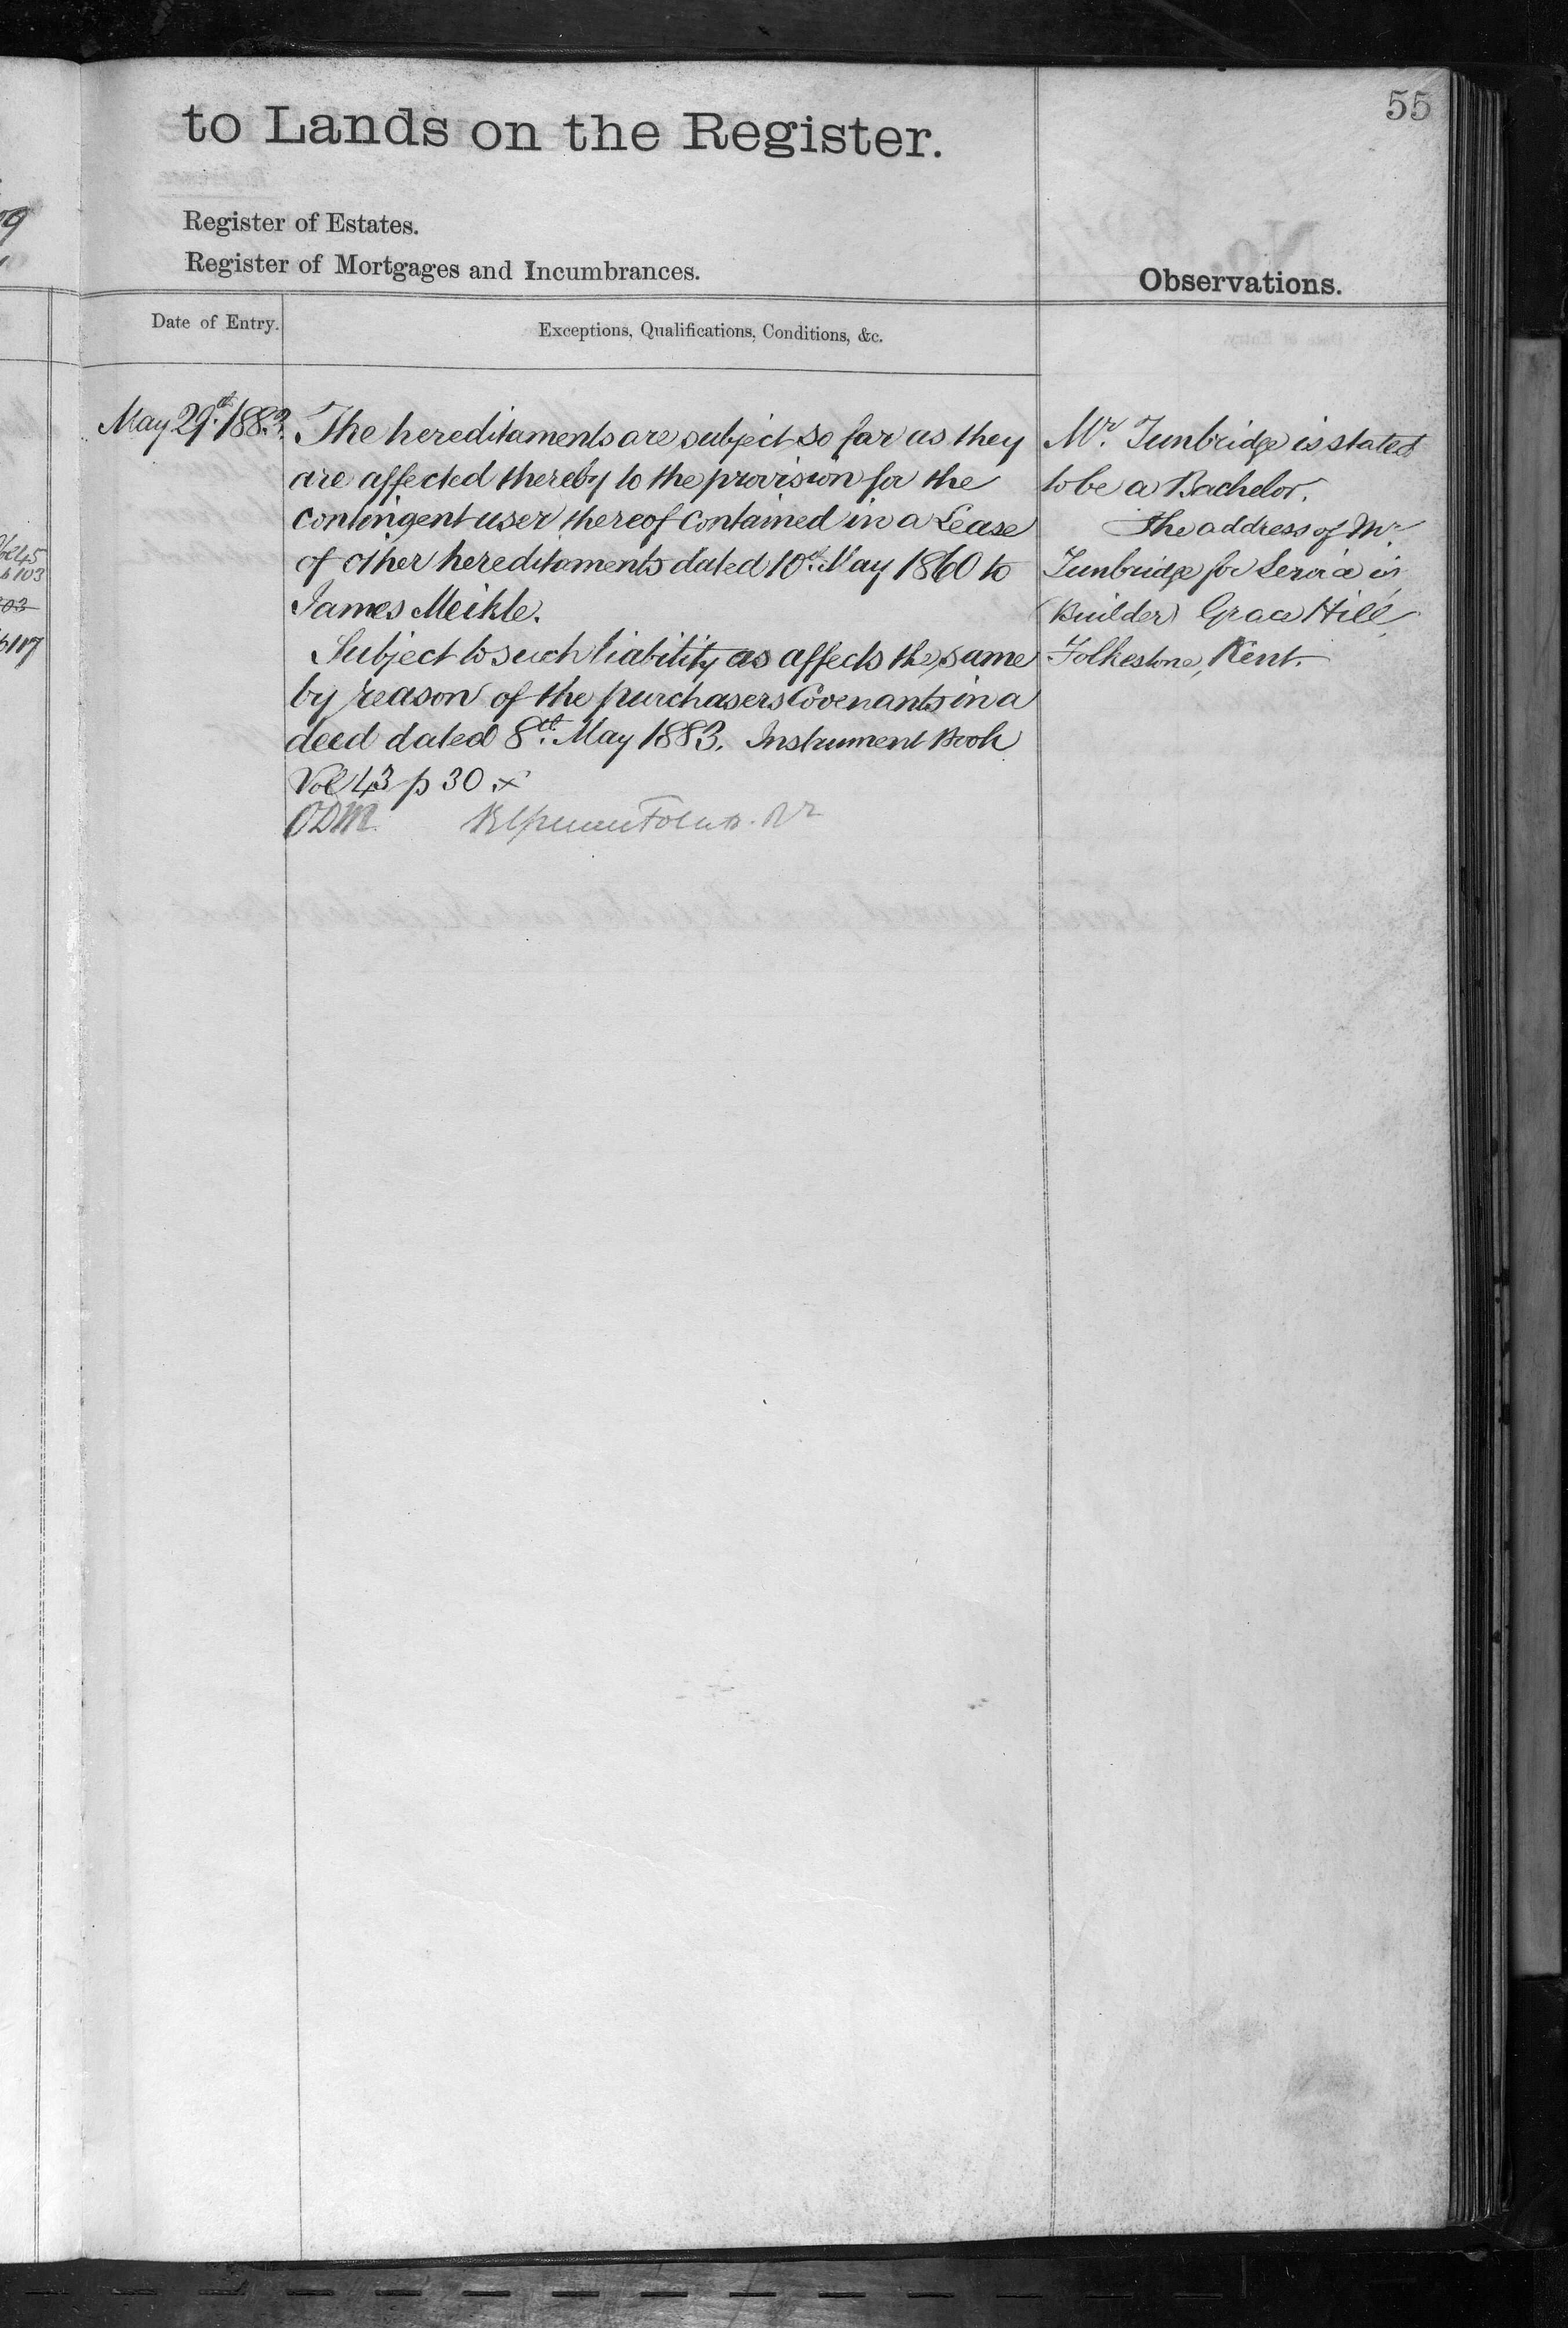 55
to Lands on the Register.
Register of Estates.
Register of Mortgages and Incumbrances.
Observations.
Date of Entry.
Exceptions, Qualifications, Conditions, &c.
May 29th. 1883.
The hereditaments are subject so far as they
are affected thereby to the provision for the
contingent user thereof contained in a Lease
of other hereditaments dated 10th. May 1860 to
James Meikle.
Subject to such liability as affects the same
by reason of the purchasers Covenants in a
deed dated 8th. May 1883. Instrument Book
Vol 43 p 30 x
ODM
Mr. Tunbridge is stated
to be a Bachelor.
The address of Mr.
Tunbridge for Service is
(Builder) Grace Hill,
Folkestone, Kent.
Vol 45
p 103
103
p 117